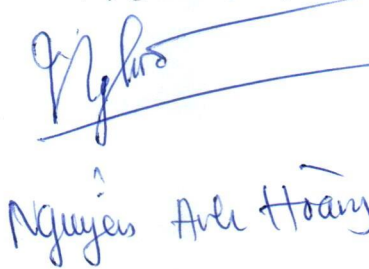 Nguyễn Anh Hoàng